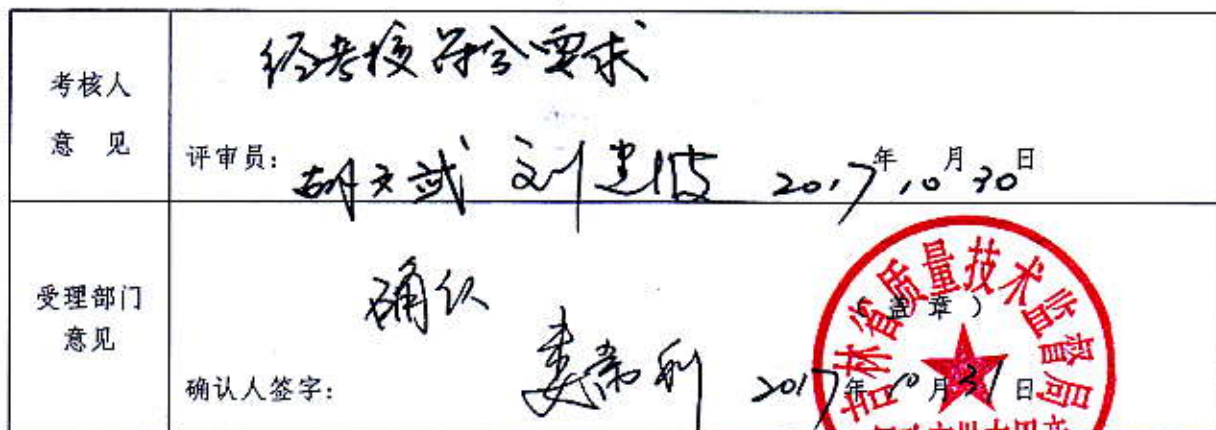 考核人
意 见
经考核符合要求
评审员:
胡文武 刘建波 2017年10月30日
受理部门
意见
确认
(盖章)
确认人签字:
2017年10月31日
吉林省质量技术监督局